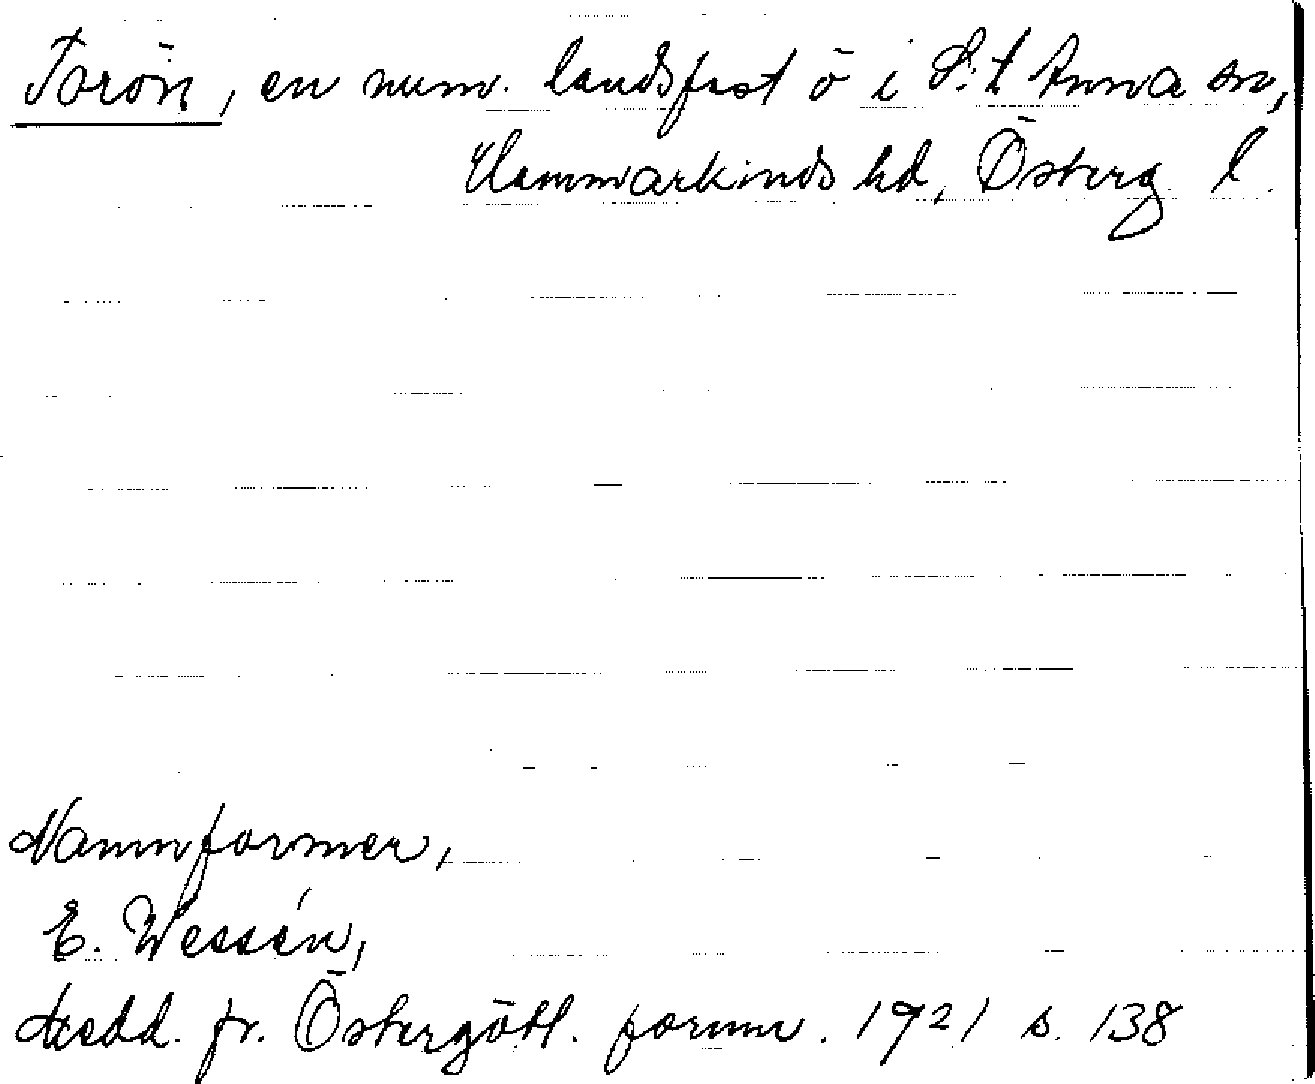 Torön, en num. landsfast ö i S:t Anna sn,
Hammarkinds hd, Österg. l.
Namnformer,
E. Wessén,
Medd. fr. Östergötl. fornm. 1921 s. 138